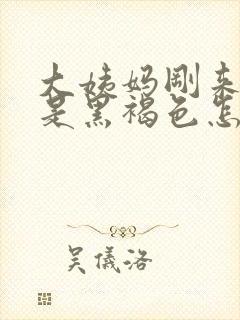 大姨妈刚来
是黑褐色怎
吴儀洛